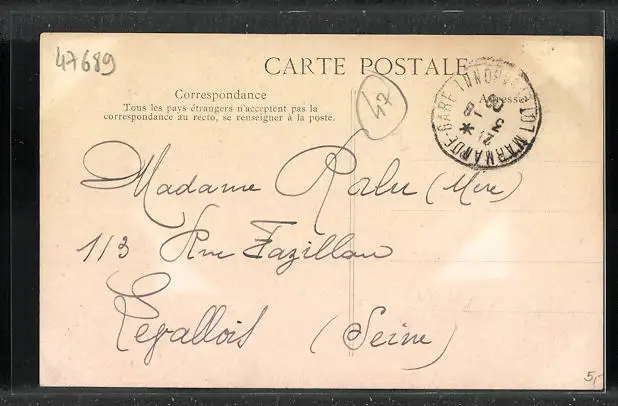 47689
CARTE POSTALE
Correspondance
Tous les pays étrangers n'acceptent pas la
correspondance au recto, se renseigner à la poste.
Adresse
MARMANDE-GARE
LOT
Madame (Mère)
113 Rue Fazillau
Levallois (Seine)